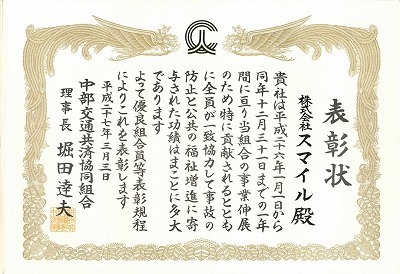 表彰状
株式会社スマイル殿
貴社は平成二十六年一月一日から
同年十二月三十一日までの一年
間に亘り当組合の事業伸展
のため特に貢献されるととも
に全員が一致協力して事故の
防止と公共の福祉増進に寄
与された功績はまことに多大
であります
よって優良組合員等表彰規程
によりこれを表彰します
平成二十七年三月三日
中部交通共済協同組合
理事長 堀田達夫